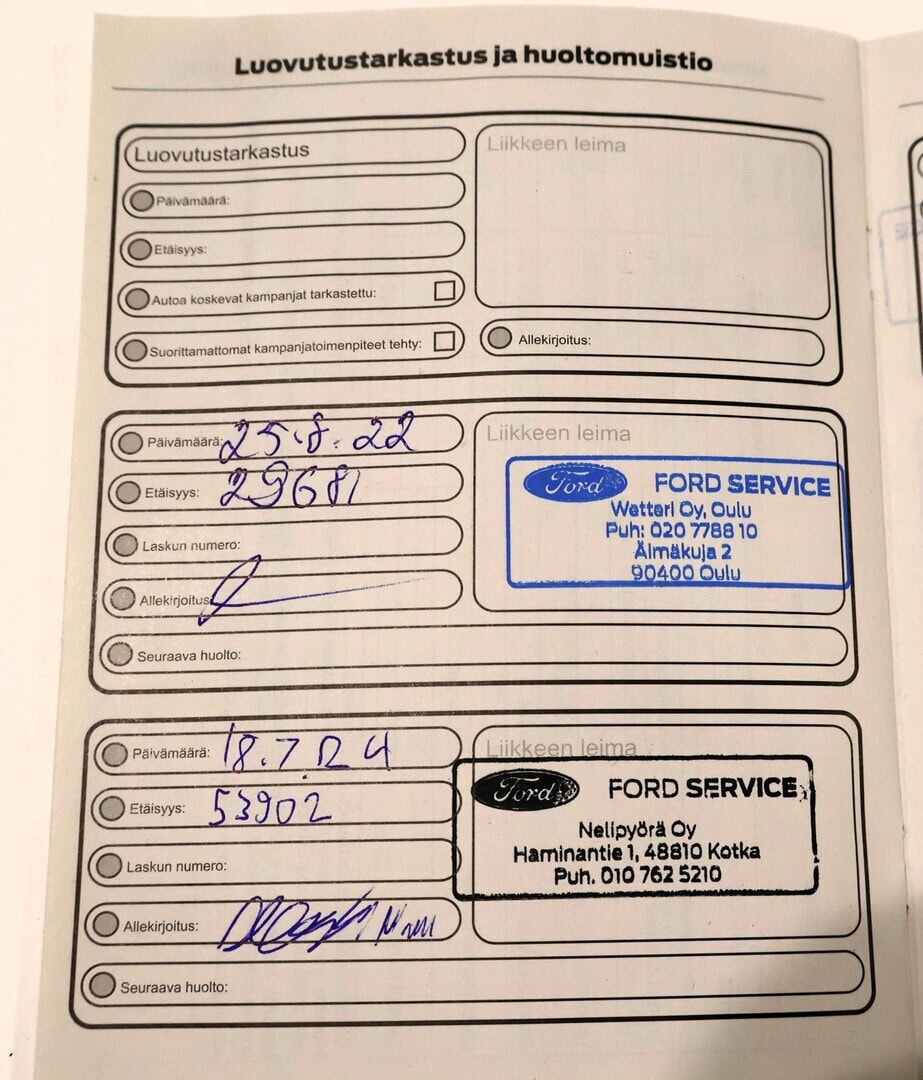 Luovutustarkastus ja huoltomuistio
Luovutustarkastus
Liikkeen leima
Päivämäärä:
Etäisyys:
Autoa koskevat kampanjat tarkastettu:
Suorittamattomat kampanjatoimenpiteet tehty:
Allekirjoitus:
Päivämäärä: 25.8.22
Etäisyys: 29681
Laskun numero:
Allekirjoitus
Seuraava huolto:
Liikkeen leima
Ford FORD SERVICE
Wetteri Oy, Oulu
Puh: 020 7788 10
Älmäkuja 2
90400 Oulu
Päivämäärä: 18.7.24
Etäisyys: 53902
Laskun numero:
Allekirjoitus:
Seuraava huolto:
Liikkeen leima
Ford FORD SERVICE
Nelipyörä Oy
Haminantie 1, 48810 Kotka
Puh. 010 762 5210